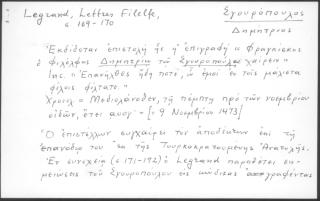 Legrand, Lettres Filelfe,
σ 169-170
Σγουρόπουλος
Δημήτριος
"Ἐκδίδεται ἐπιστολὴ ἧς ἡ ἐπιγραφή « Φραγκίσκος
ὁ Φιλέλφος Δημητρίῳ τῷ Σγουροπούλῳ χαίρειν"
Inc. "Ἐπανῆλθες ἤδη ποτέ, ὦ ἐμοὶ ἐν τοῖς μάλιστα
φίλοις φίλτατε."
Χρονολ = Μεδιολάνοθεν, τῇ πέμπτῃ πρὸ τῶν νοεμβρίου
εἰδῶν, ἔτει αυογ' - [= 9 Νοεμβρίου 1473]
"Ὁ ἐπιστέλλων συγχαίρει τὸν ἀποδέκτην ἐπὶ τῇ
ἐπανόδῳ του ἐκ τῆς Τουρκοκρατουμένης Ἀνατολῆς.
Ἐν συνεχείᾳ (σ 171-192) ὁ Legrand παραθέτει ση-
μειώσεις τοῦ Σγουροπούλου εἰς κώδικας ἀπογραφέντας